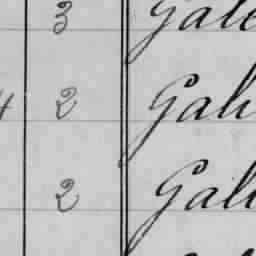 3 Gale
4 2 Gali
2 Gali